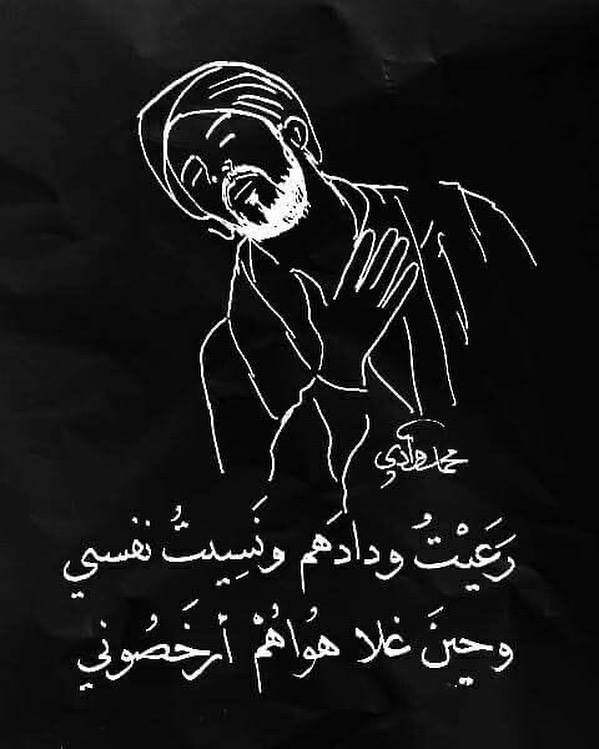 محمد
رَعَيْتُ ودادَهم ونَسِيتُ نفسي
وحينَ غلا هوُاهُمْ أرخَصُوني